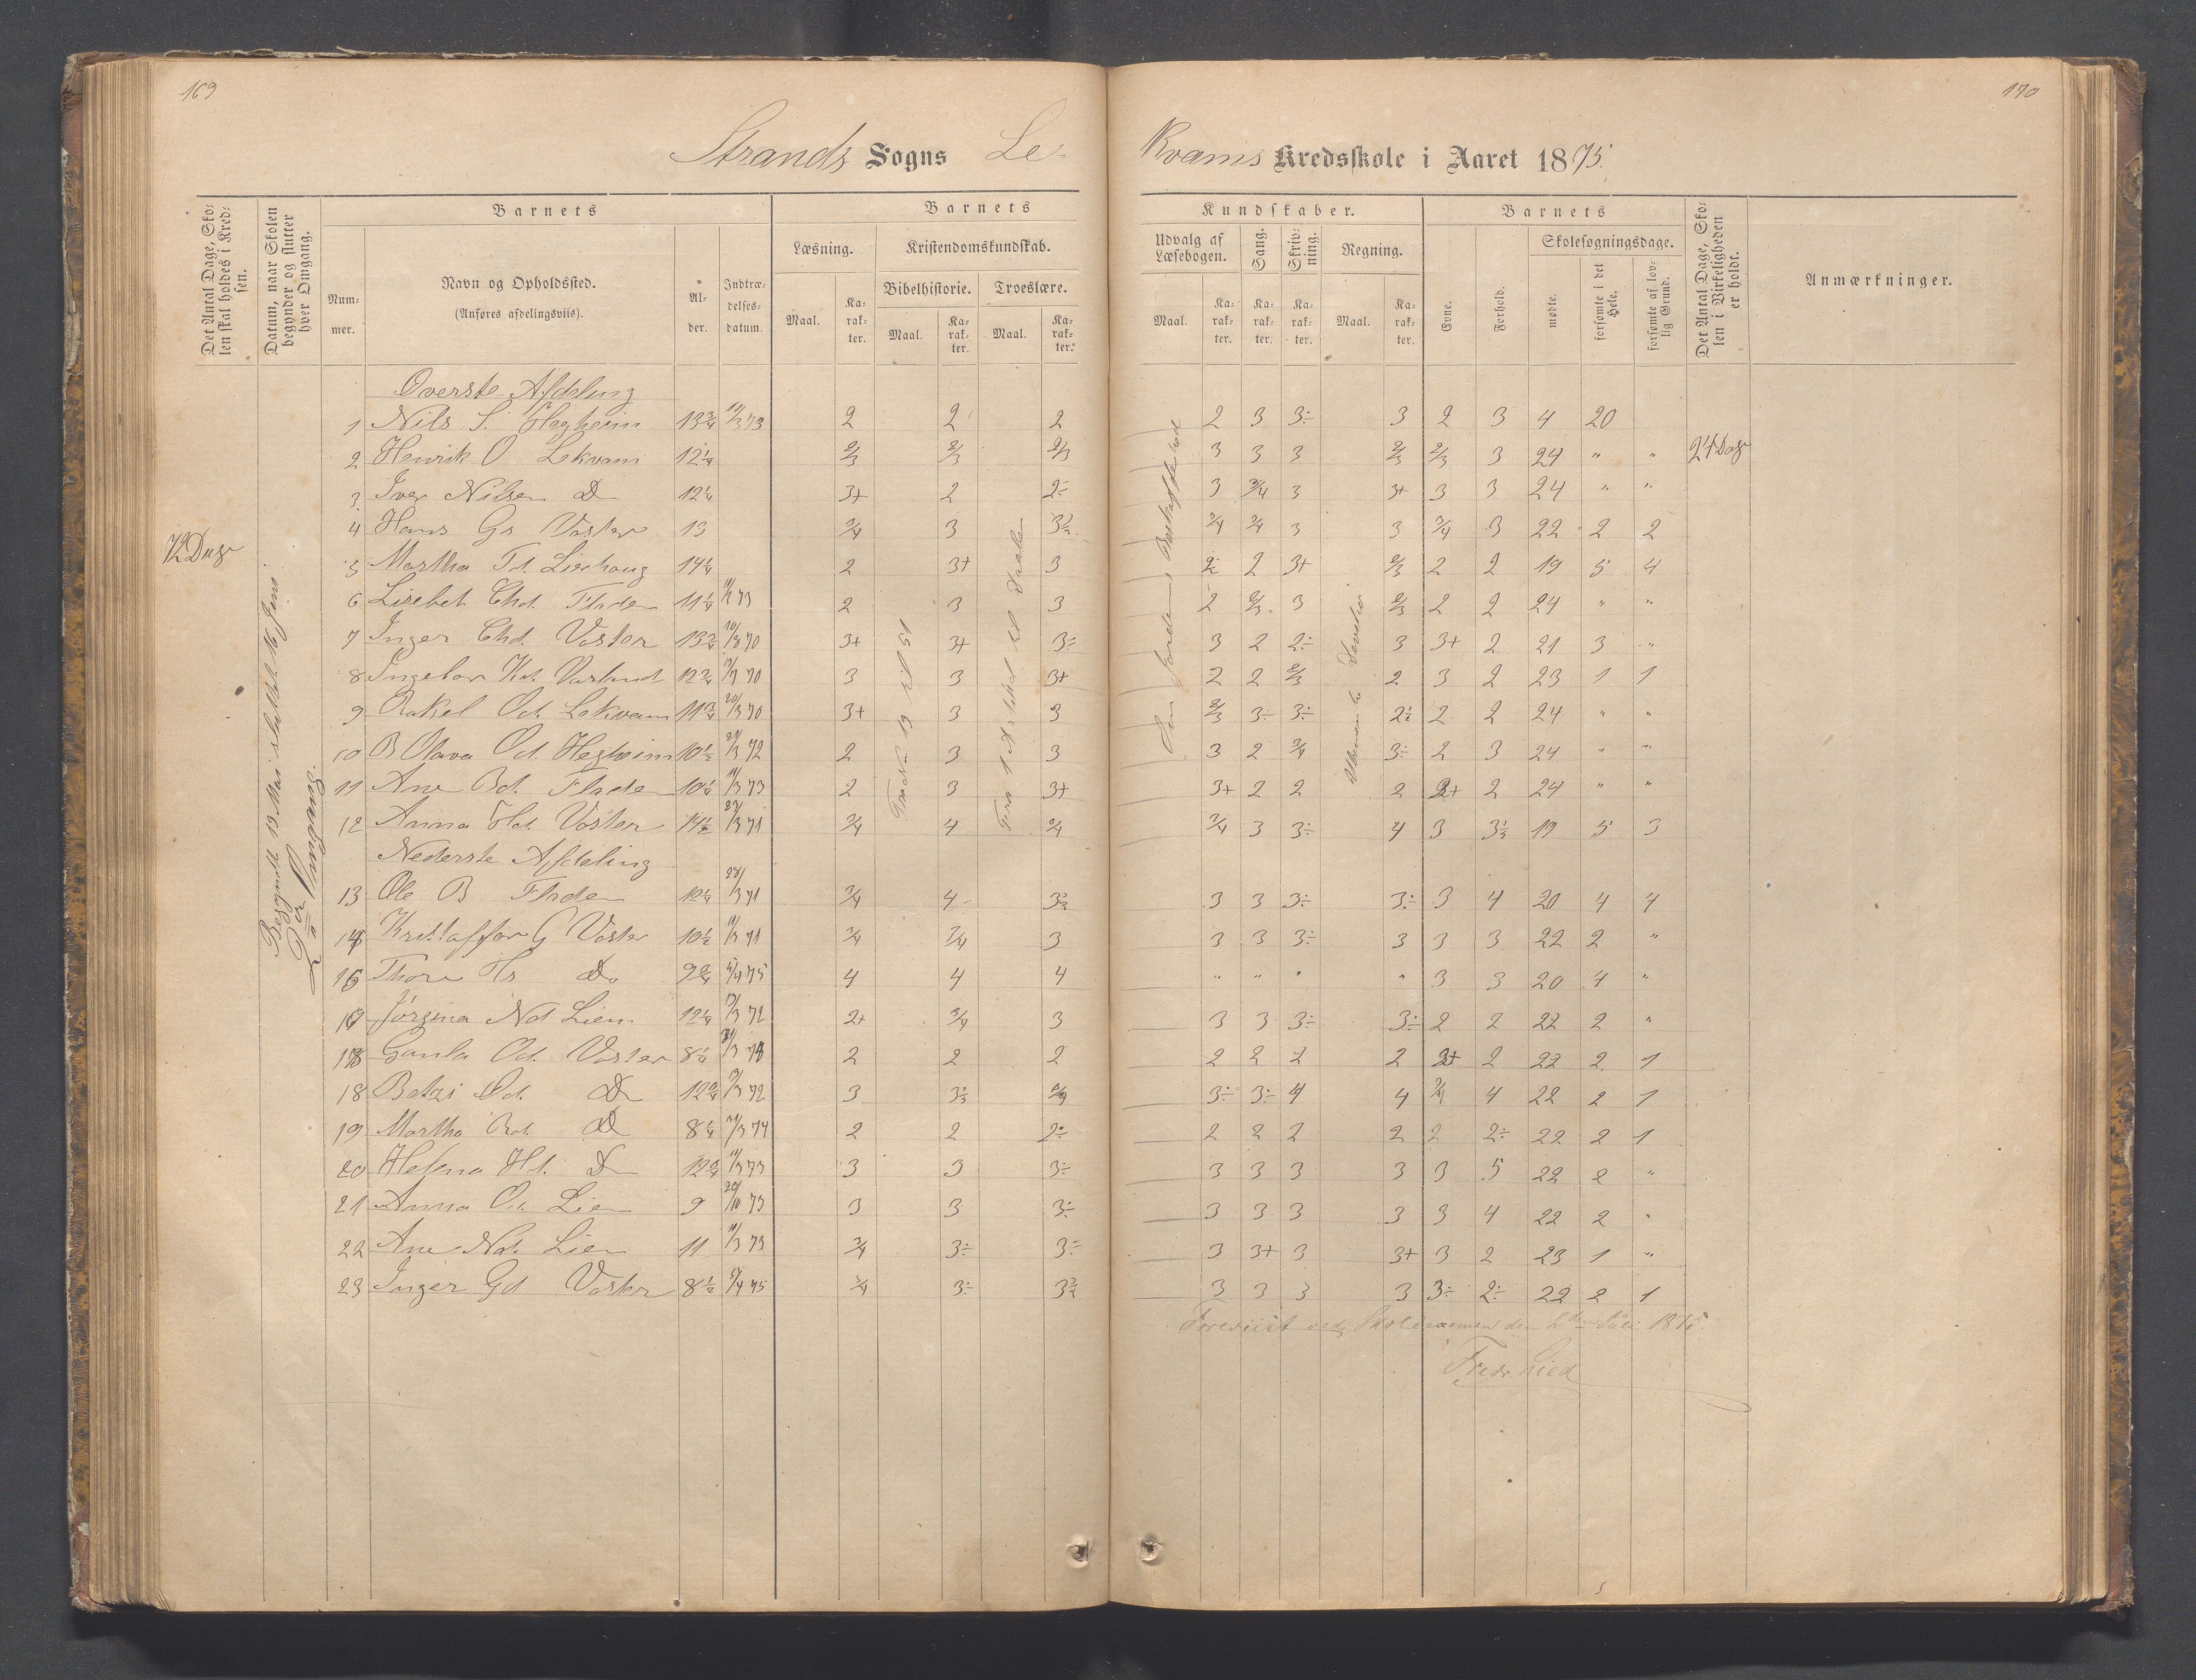 169
170
Strands Sogns Le-
Kvams Kredsskole i Aaret 1875.
Det Antal Dage, Skolen skal holdes i Kredsen.
Datum, naar Skolen begynder og slutter hver Omgang.
Barnets
Nummer.
Navn og Opholdssted.
(Anføres afdelingsviis).
Alder.
Indtrædelsesdatum.
Barnets
Læsning.
Maal.
Karakter.
Kristendomskundskab.
Bibelhistorie.
Maal.
Karakter.
Troeslære.
Maal.
Karakter.
Kundskaber.
Udvalg af Læsebogen.
Maal.
Karakter.
Sang.
Karakter.
Skrivning.
Karakter.
Regning.
Maal.
Karakter.
Barnets
Evne.
Forhold.
Skolesøgningsdage.
mødte.
forsømte i det Hele.
forsømte af lovlig Grund.
Det Antal Dage, Skolen i Virkeligheden er holdt.
Anmærkninger.
72 Dage
Begyndt 19 Mai sluttet 16 Juni.
2en Omgang.
Fra No 19 til 51
Fra 1 Artikel til Daaben
Om Jordens Beskaffenhed
24 Dage
Øverste Afdeling
1 Nils S. Hegheim 13 3/4 11/3 73 2 2 2 2 3 3÷ 3 2 3 4 20
2 Henrik O Lekvam 12 1/4 2/3 2/3 2/3 3 3 3 2/3 2/3 3 24 " "
3 Iver Nilsen Do 12 1/4 3+ 2 2÷ 3 3/4 3 3+ 3 3 24 " "
4 Hans Gs Vøster 13 3/4 3 3½ 3/4 3/4 3 3 3/4 3 22 2 2
5 Martha Td. Lierhaug 14 1/4 2 3+ 3 2÷ 2 3+ 2/3 2 2 19 5 4
6 Lisebet Chd. Fladen 11 1/4 2 3 3 2 2/3 3 2/3 2 2 24 " "
7 Inger Chd. Vøster 13 3/4 10/3 70 3+ 3+ 3÷ 3 2 2÷ 3 3+ 2 21 3 "
8 Ingebor Kd. 12 3/4 3 3 3+ 2 2 2/3 2 3 2 23 1 1
9 Rakel Od. Lekvam 11 3/4 20/3 70 3+ 3 3 2/3 3÷ 3÷ 2½ 2 2 24 " "
10 B Olava Od. Hegheim 10½ 2 3 3 3 2 3/4 3÷ 2 3 24 " "
11 Ane Bd. Fladen 10 1/4 11/3 73 2 3 3+ 3+ 2 2 2 2+ 2 24 " "
12 Anna Hd. Vøster 14½ 3/4 4 3/4 3/4 3 3÷ 4 3 3½ 19 5 3
Nederste Afdeling
13 Ole B Fladen 12 1/4 3/4 4 3½ 3 3 3÷ 3÷ 3 4 20 4 4
14 Kristoffer G Vøster 10½ 3/4 3/4 3 3 3 3÷ 3 3 3 22 2 "
15 Thore Hs Do 9 3/4 5/4 75 4 4 4 " " " " 3 3 20 4 "
16 Jørgina Nd Lien 12 1/4 2+ 3/4 3 3 3 3÷ 3÷ 2 2 22 2 "
17 Gunla Od. Vøster 8 1/4 2 2 2 2 2 2 2 3+ 2 22 2 1
18 Betzi Od. Do 12 3/4 3 3½ 3÷ 3÷ 4 4 3/4 4 22 2 1
19 Martha Bd. Do 8 1/4 2 2 2÷ 2 2 2 2 2 2÷ 22 2 1
20 Helena Hd. Do 12 3/4 11/3 73 3 3 3÷ 3 3 3 3 3 5 22 2 "
21 Anna Od. Lien 9 20/10 73 3 3 3÷ 3 3 3 3 3 4 22 2 "
22 Ane Nd. Lien 11 11/3 73 3/4 3÷ 3÷ 3 3+ 3 3+ 3 2 23 1 "
23 Inger Gd Vøster 8½ 5/4 75 3/4 3÷ 3½ 3 3 3 3 3÷ 2÷ 22 2 1
Foreviist ved Skoleexamen den Juli 1875.